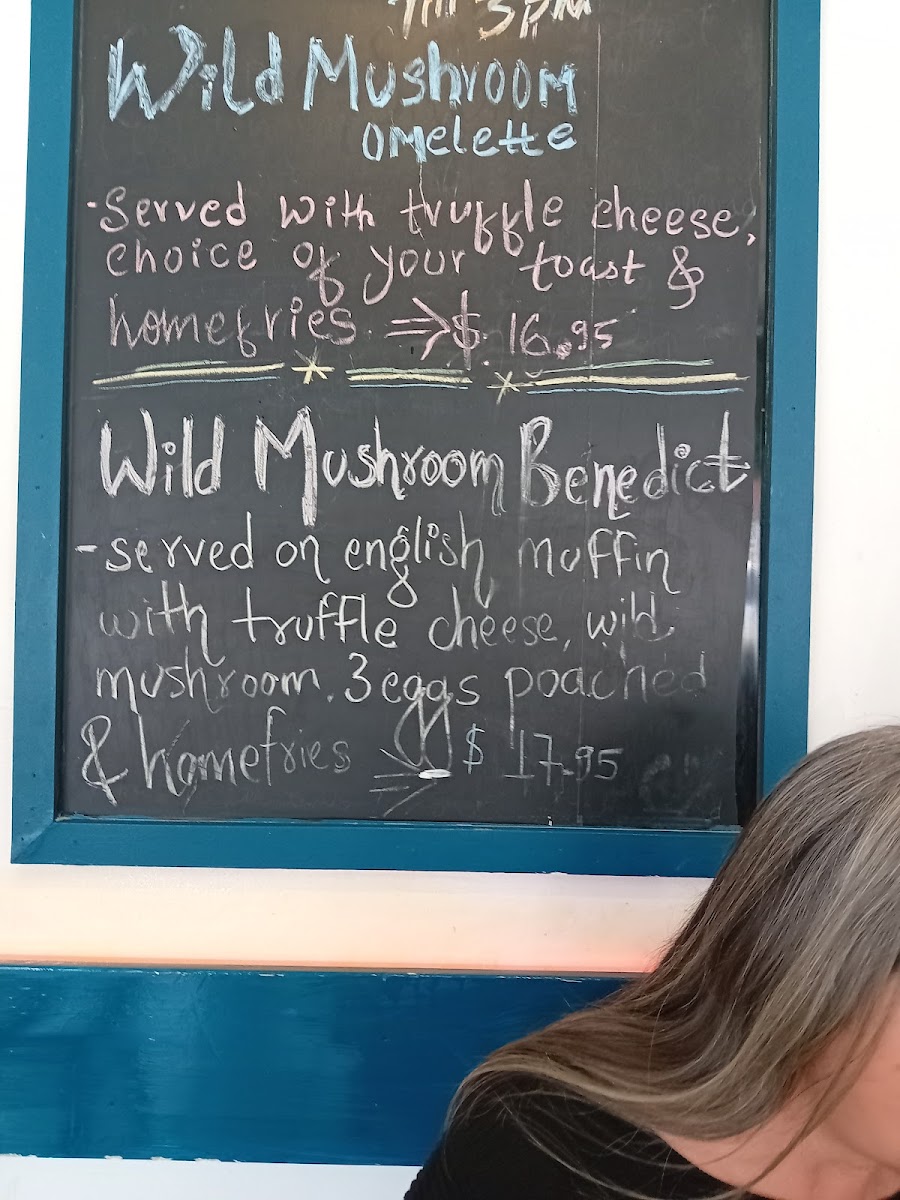 3PM
Wild Mushroom
omelette
·Served with truffle cheese,
choice of your toast &
homefries ⇒ $ 16.95
Wild Mushroom Benedict
-served on english muffin
with truffle cheese, wild
mushroom. 3 eggs poached
& homefries ⇒ $ 17.95